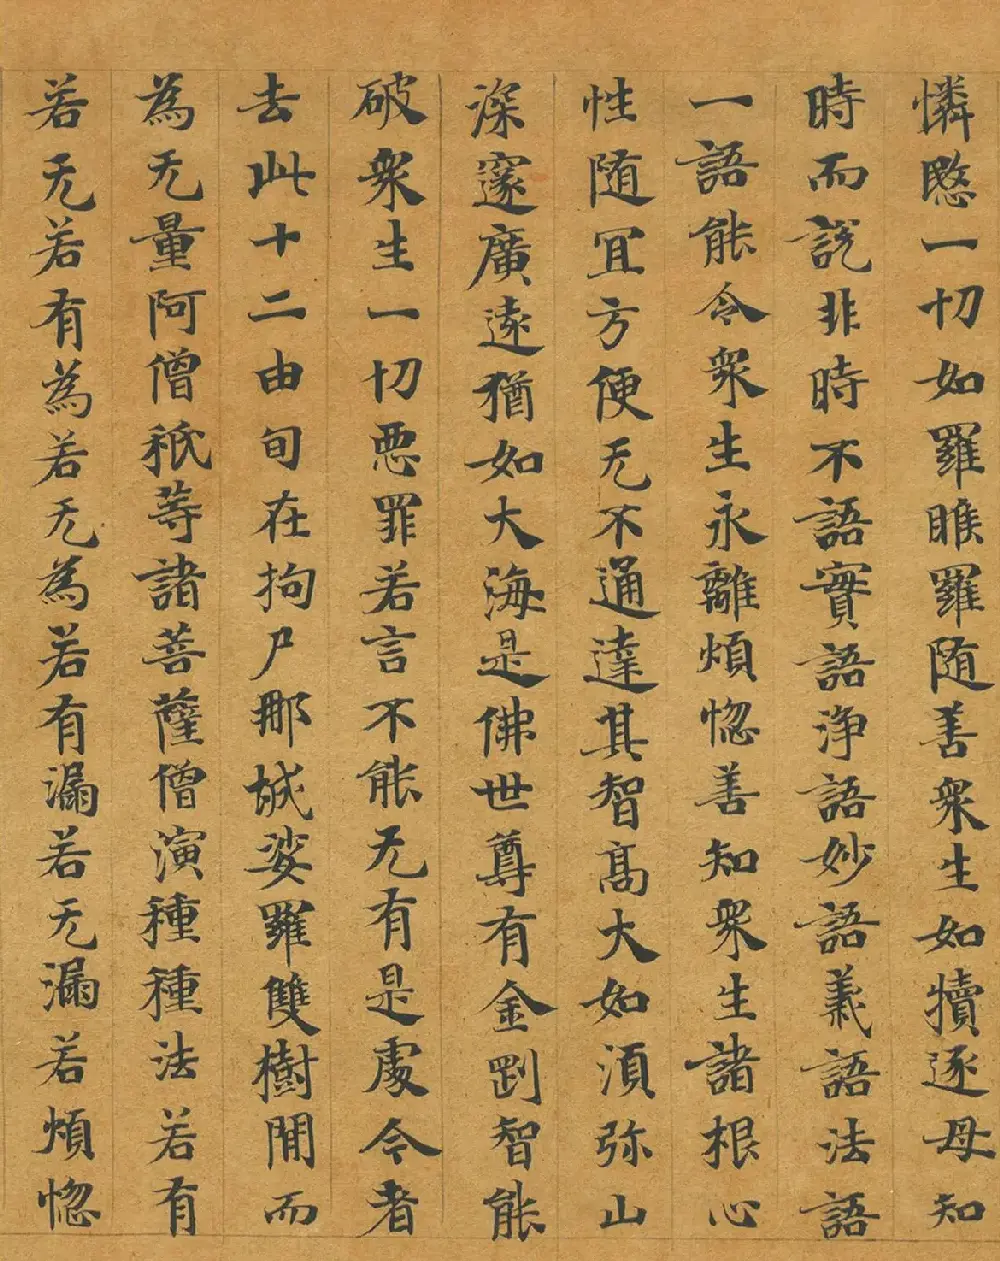 憐愍一切如羅睺羅随善衆生如犢逐母知
時而説非時不語實語浄語妙語義語法語
一語能令衆生永離煩惚善知衆生諸根心
性随冝方便无不通達其智髙大如湏弥山
深邃廣遠猶如大海是佛世尊有金剛智能
破衆生一切悪罪若言不能无有是處今者
去此十二由旬在拘尸那城娑羅雙樹間而
為无量阿僧祇等諸菩薩僧演種種法若有
若无若有為若无為若有漏若无漏若煩惚